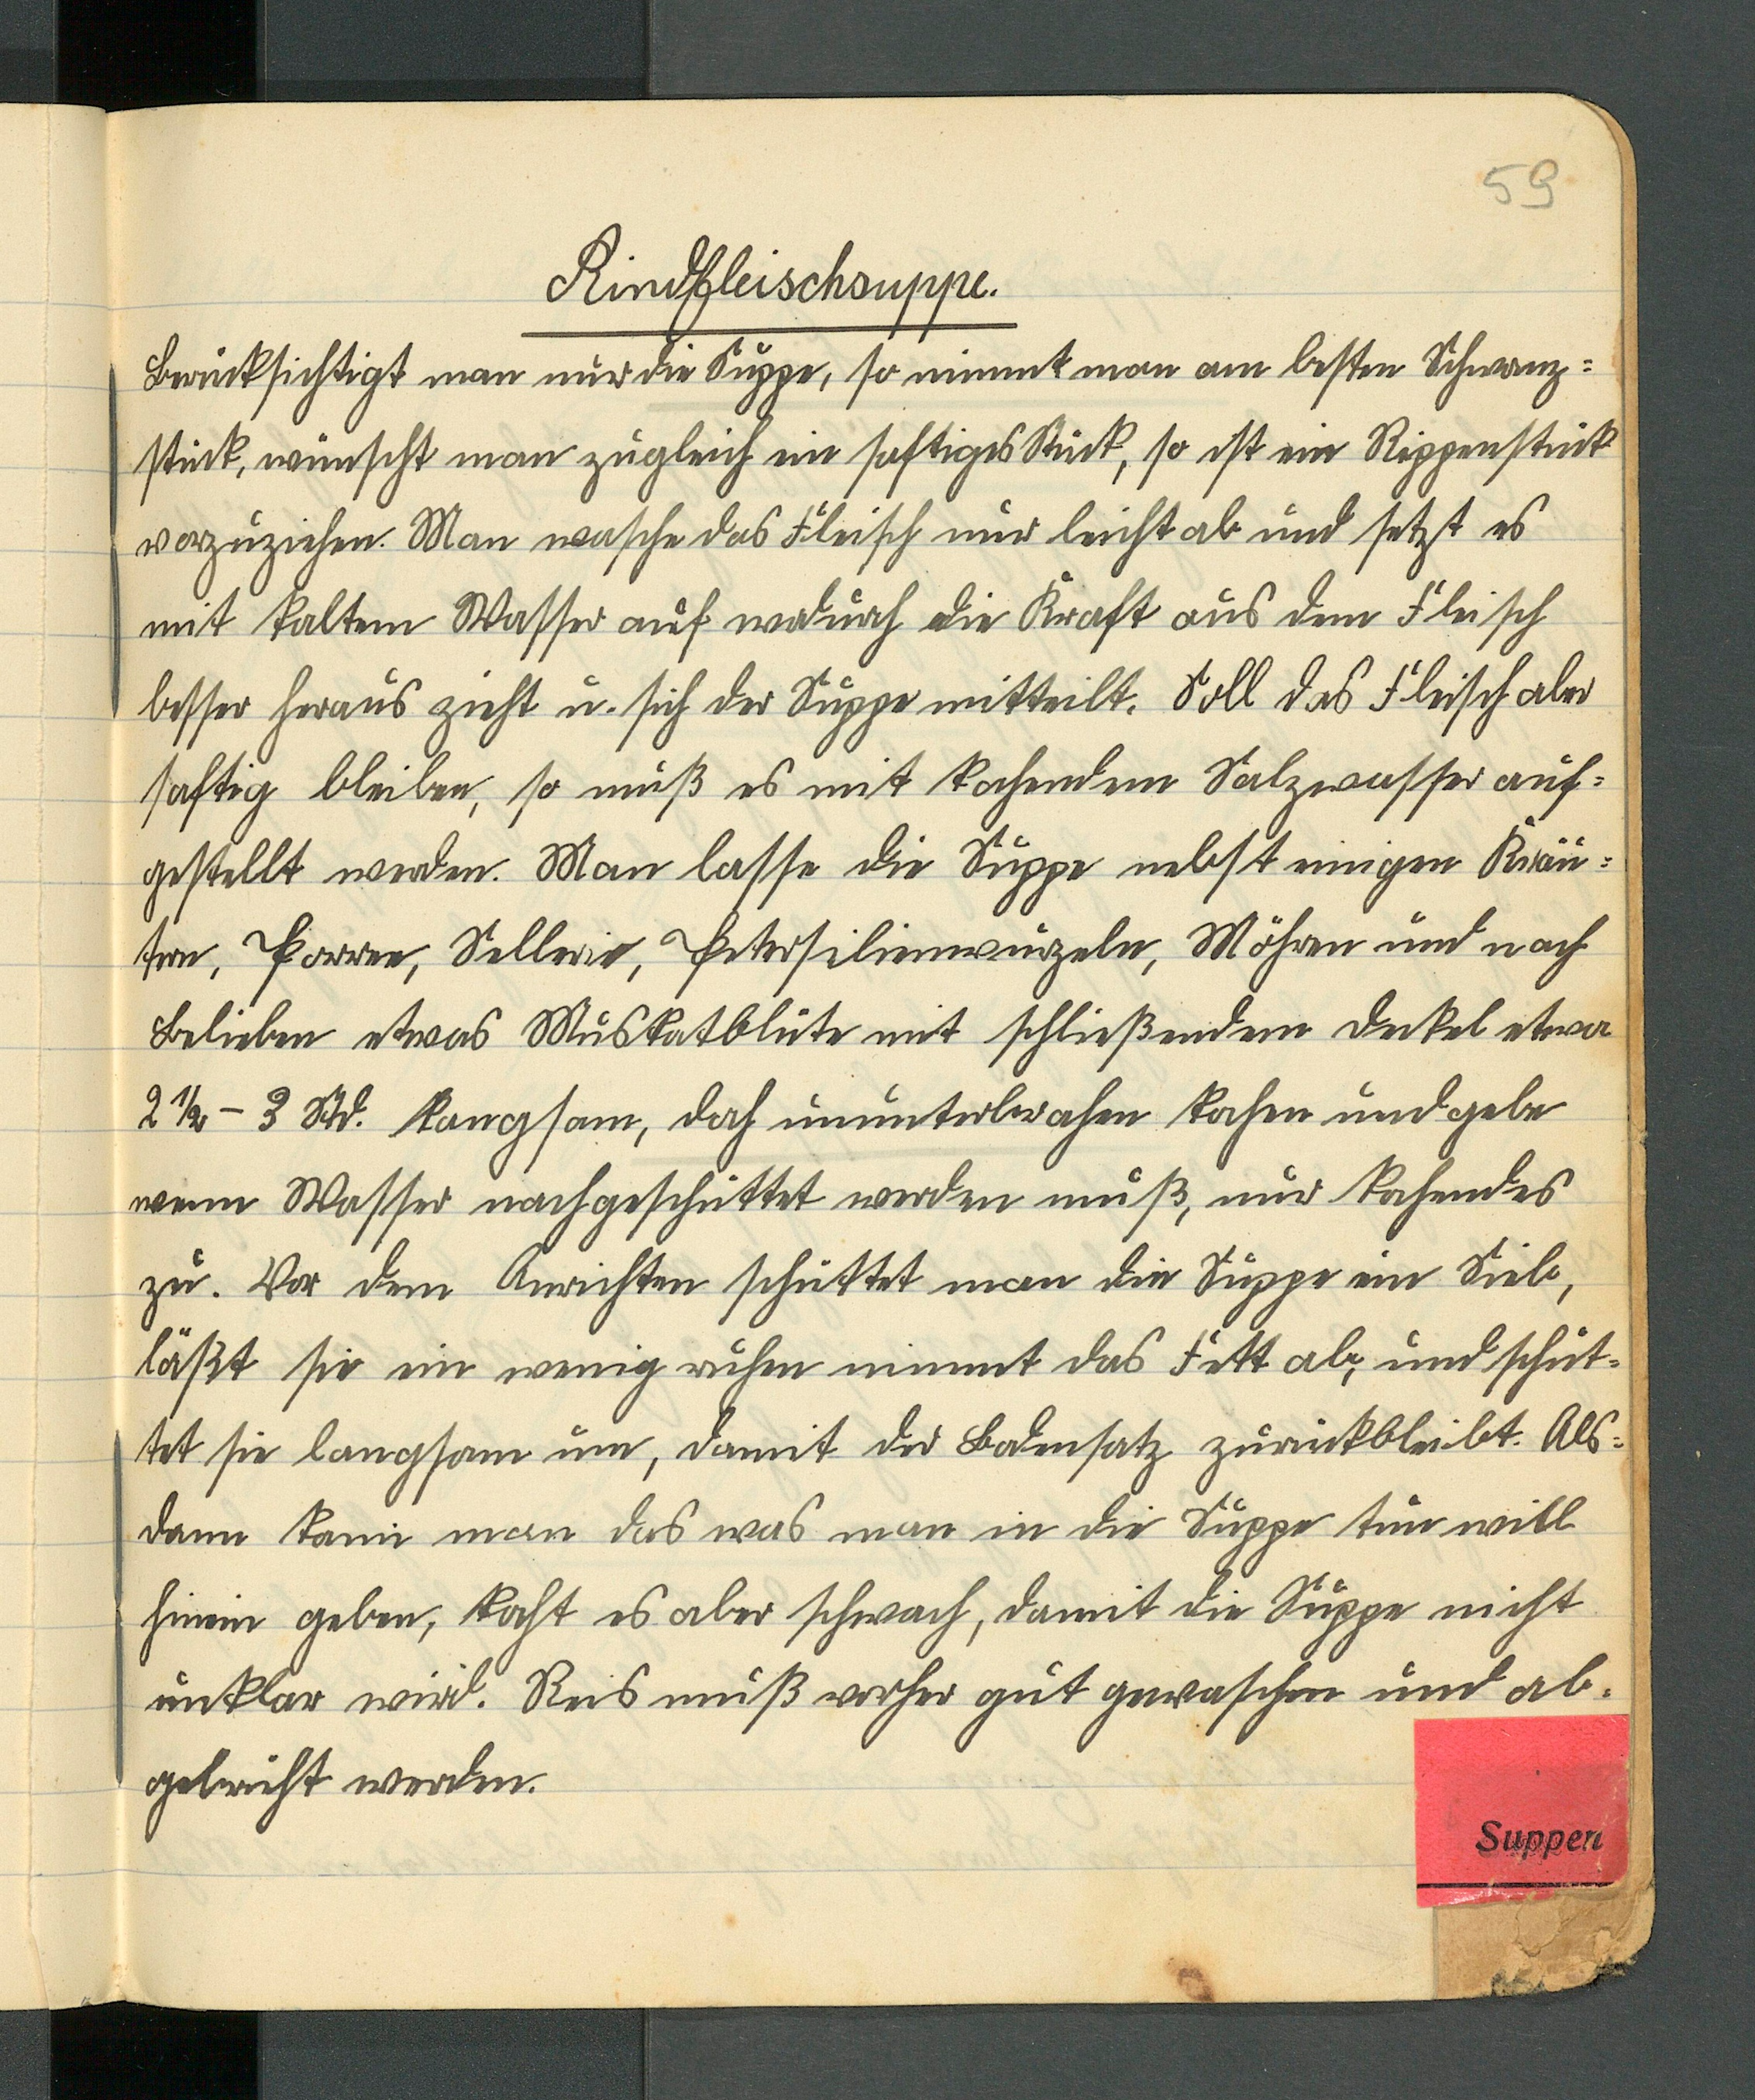 59
Rindfleischsuppe.
Berücksichtigt man nur die Suppe, so nimmt man am besten Schwanz=
stück, wünscht man zugleich ein saftiges Stück, so ist ein Rippenstück
vorzuziehen. Man wasche das Fleisch nur leicht ab und setzt es
mit kaltem Wasser auf wodurch die Kraft aus dem Fleisch
besser heraus zieht u. sich der Suppe mitteilt. Soll das Fleisch aber
saftig bleiben, so muß es mit kochendem Salzwasser auf=
gestellt werden. Man lasse die Suppe nebst einigen Kräu=
tern, Porree, Sellerie, Petersilienwurzeln, Möhren und nach
Belieben etwas Muskatblüte mit schließendem Deckel etwa
2 1/2 – 3 Std. langsam, doch ununterbrochen kochen und gebe
wenn Wasser nachgeschüttet werden muß, nur kochendes
zu. Vor dem Anrichten schüttet man die Suppe ein Sieb,
läßt sie ein wenig ruhen nimmt das Fett ab, und schüt=
tet sie langsam um, damit der Bodensatz zurückbleibt. Als=
dann kann man das was man in die Suppe tun will
hinein geben, kocht es aber schwach, damit die Suppe nicht
unklar wird. Reis muß vorher gut gewaschen und ab=
gebrüht werden.
Suppen